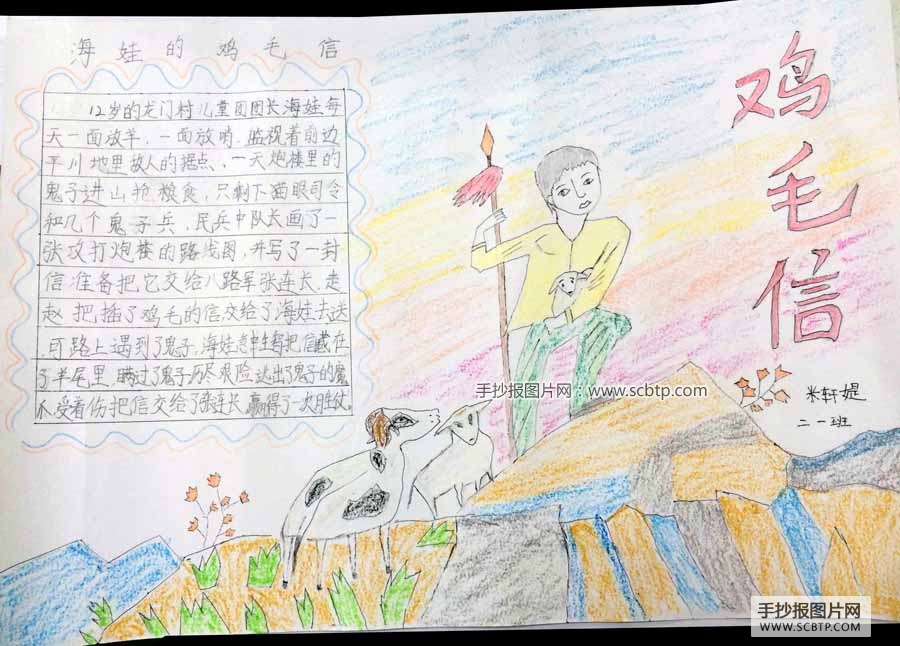 海娃的鸡毛信
12岁的龙门村儿童团团长海娃每
天一面放羊,一面放哨.监视着前边
平川地里敌人的据点.一天炮楼里的
鬼子进山抢粮食,只剩下猫眼司令
和几个鬼子兵,民兵中队长画了一
张攻打炮楼的路线图,并写了一封
信准备把它交给八路军张连长.老
赵把插了鸡毛的信交给了海娃去送
可路上遇到了鬼子,海娃急中生智把信藏在
了羊尾里.瞒过了鬼子历尽艰险逃出了鬼子的魔
爪.受着伤把信交给了张连长赢得了一次胜仗。
鸡毛信
米轩媞
二一班
手抄报图片网:www.scbtp.com
手抄报图片网
WWW.SCBTP.COM